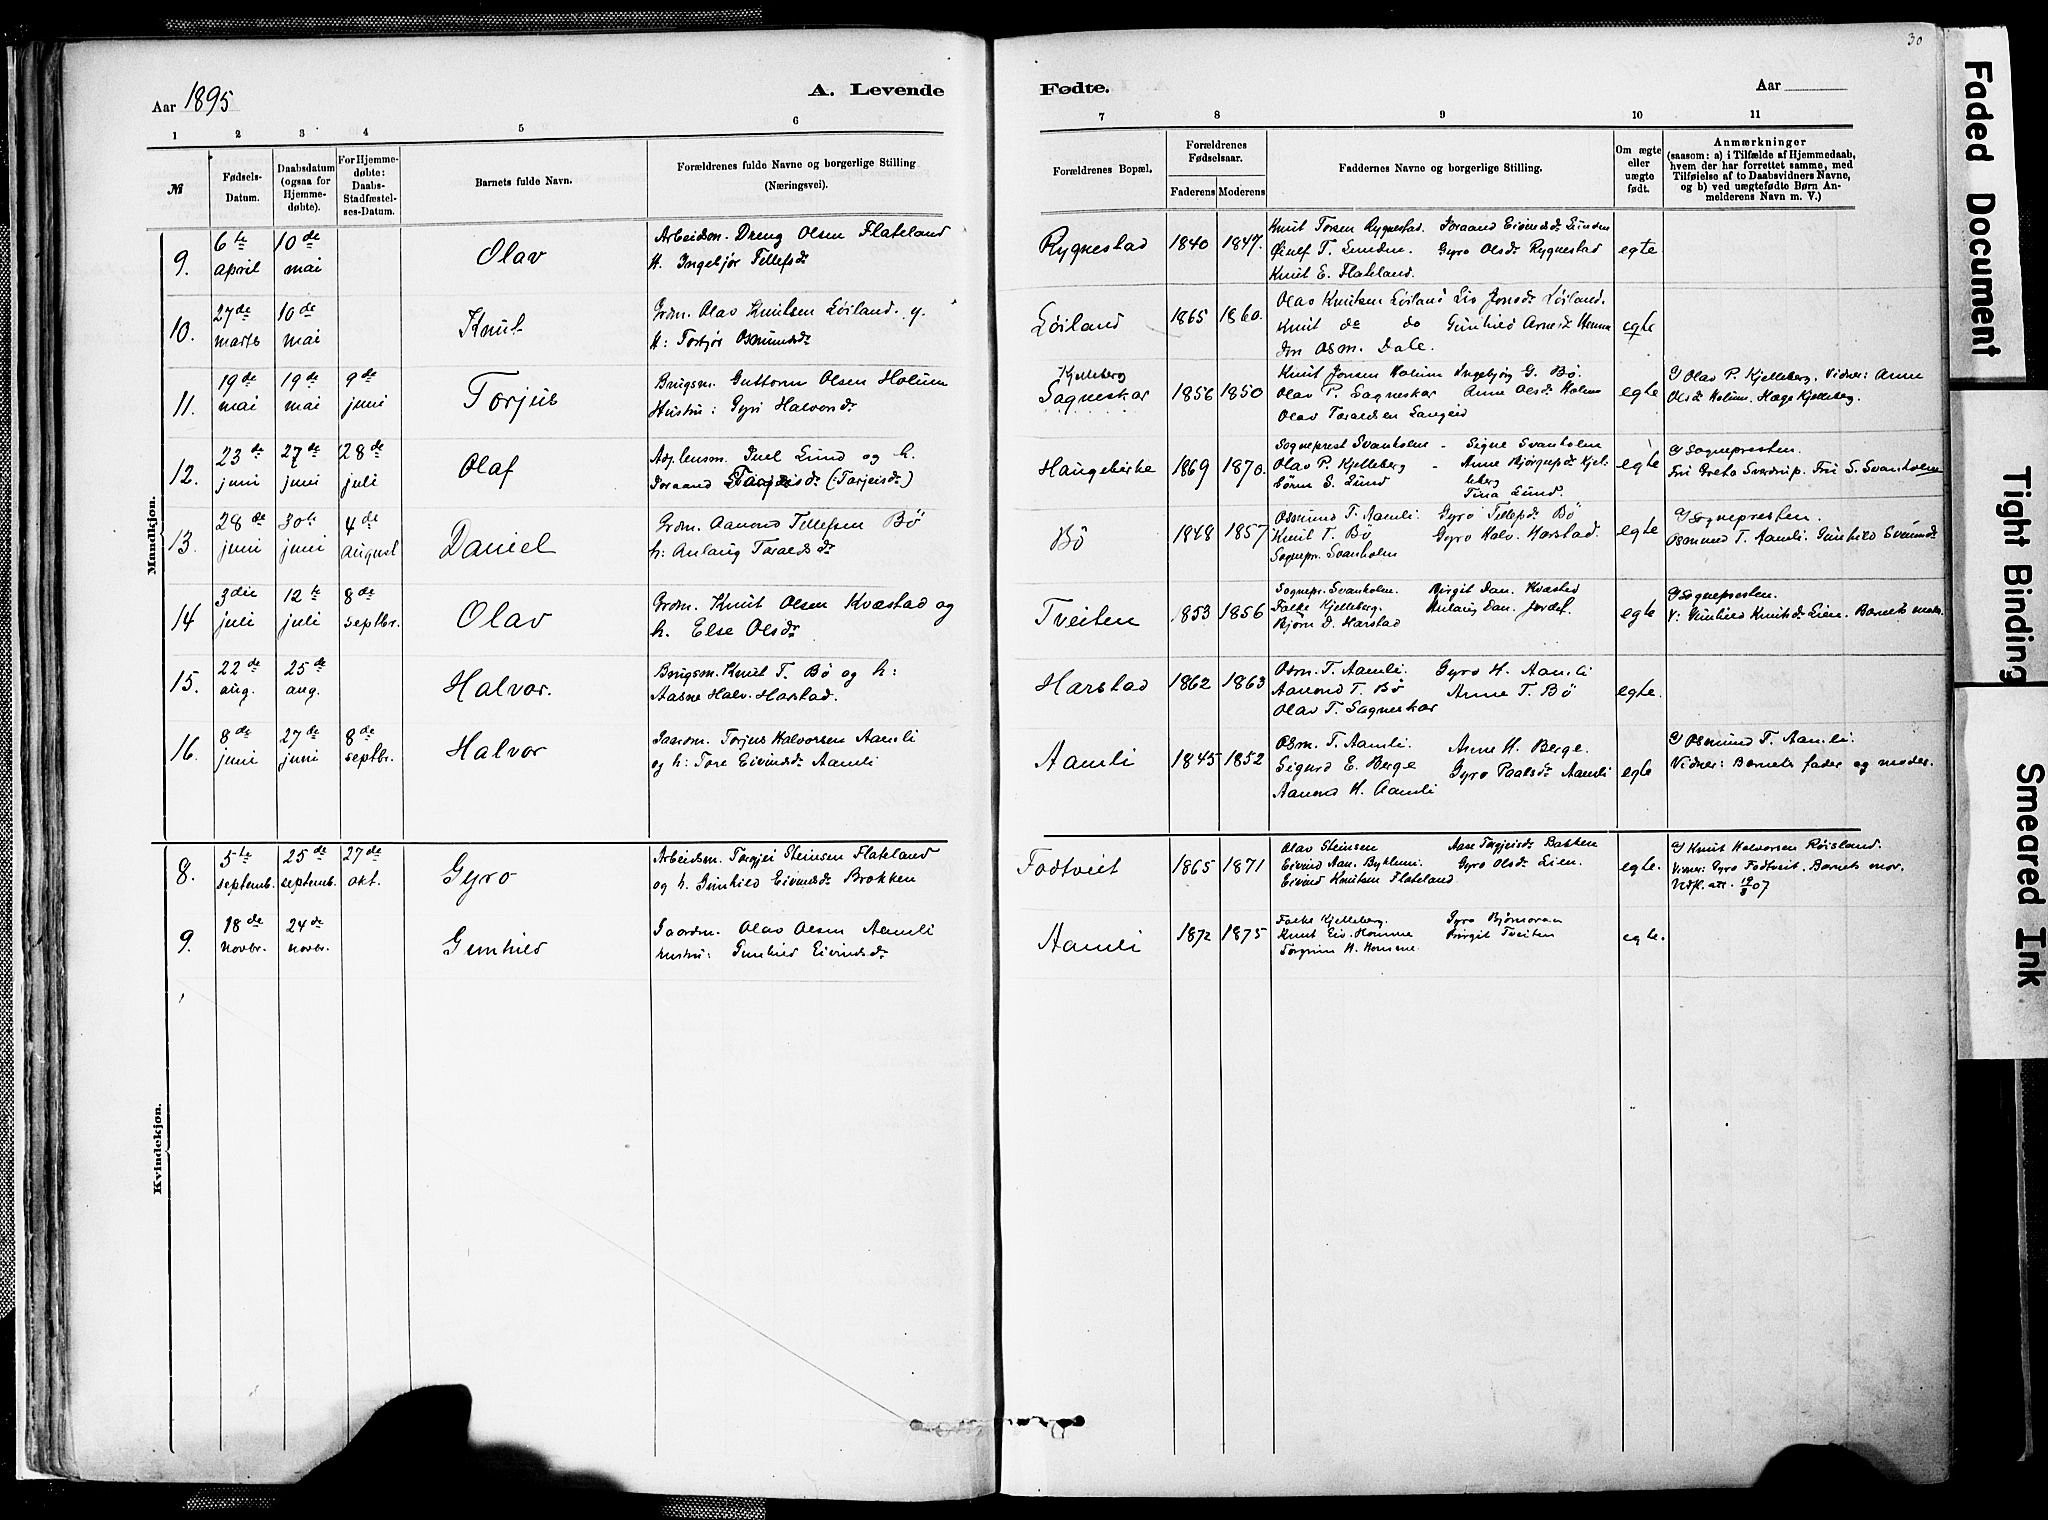 30
Aar 1895
A. Levende
Fødte.
Aar
1 2 3 4 5 6 7 8 9 10 11
№
Fødsels-
Datum.
Daabsdatum
(ogsaa for
Hjemme-
døbte).
For Hjemme-
døbte:
Daabs-
Stadfæstel-
ses-Datum.
Barnets fulde Navn.
Forældrenes fulde Navne og borgerlige Stilling
(Næringsvei).
Forældrenes Bopæl.
Forældrenes
Fødselsaar.
Faderens Moderens
Faddernes Navne og borgerlige Stilling.
Om ægte
eller
uægte
født.
Anmærkninger
(saasom: a) i Tilfælde af Hjemmedaab,
hvem der har forrettet samme, med
Tilføielse af to Daabsvidners Navne,
og b) ved uægtefødte Børn An-
melderens Navn m. V.)
Mandkjøn.
9.
6te
april
10de
mai
Olav
Arbeidsm. Dreng Olsen Flateland
H. Ingebjør Tellefsdr
Rygnestad
1840 1847.
Knut Torsen Rygnestad. Joraand Eivindsdr Lunden
T. Lunden. Gyro Olsdr Rygnestad
Knut E. Flateland.
egte
10.
27de
marts
10de
mai
Knut
Grdm. Olav Knutsen Løiland. g.
H: Torbjør Osmundsdr
Løiland
1865 1860.
Olav Knutsen Løiland Liv Jonsdr Løiland.
Knut do do Gunhild Arnesdr Homme
Jon Osm. Dale.
egte
11.
19de
mai
19de
mai
9de
juni
Torjus
Brugsm. Guttorm Olsen Holum
Hustru: Gyri Halvorsdr
Kjelleberg
Sagneskar
1856 1850
Knut Jonsen Holum Ingebjørg G. Bø.
Olav P. Sagneskar Anne Olsdr Holum
Olav Taraldsen Langeid
egte
Olav P. Kjelleberg. Vidner: Anne
Olsdr Holum. Hæge Kjelleberg.
12.
23de
juni
27de
juni
28de
juli
Olaf
Adj. lensm. Juel Lund og h.
Joraand Targjeisdr (Tarjeisdr)
Haugebirke
1869 1870.
Sogneprest Svanholm - Signe Svanholm
Olav P. Kjelleberg - Anne Bjørgusdr Kjel-
leberg
Søren S. Lund Tina Lund.
egte
Sognepresten.
Fru Greta Sverdrup. Fru S. Svanholm
13.
28de
juni
30te
juni
4de
august
Daniel
Grdm. Aanond Tellefsen Bø
h: Anlaug Taraldsdr
Bø
1848 1857
Osmund T. Aamli. Gyro Tellefsdr Bø
Knut T. Bø Gyro Halv. Harstad.
Sognepr. Svanholm
egte
Sognepresten.
Osmund T. Aamli. Gunhild Svenundr
14
3die
juli
12te
juli
8de
septbr.
Olav
Grdm. Knut Olsen Kvæstad og
h. Else Olsdr
Tveiten
1853 1856
Sognepr. Svanholm. Birgit Dan. Kvæstad
Falke Kjelleberg. Anlaug Dan. Jordet.
Bjørn D. Harstad
egte
Sognepresten.
V: Gunhild Knutsdr Lien. Barnets mor.
15.
22de
aug.
25de
aug.
Halvor.
Brugsm. Knut T. Bø og h:
Aasne Halv. Harstad.
Harstad
1862 1863
Osm. T. Aamli. Gyro H. Aamli
Aanond T. Bø Anne T. Bø
Olav T. Sagneskar
egte.
16.
8de
juni
27de
juni
8de
septbr.
Halvor
Gaardm. Torjus Halvorsen Aamli
og h: Tore Eivindsdr Aamli
Aamli
1845 1852
Osm. T. Aamli. Anne H. Berge.
Sigurd E. Berge Gyro Paalsdr Aamli
Aanond H. Aamli
egte
Osmund T. Aamli.
Vidner: Barnets fader og moder.
Kvindekjøn.
8.
5te
septemb.
25de
septemb.
27de
okt.
Gyro
Arbeidsm. Torgjei Steinsen Flateland
og h. Gunhild Eivindsdr Brokken
Fodtveit
1865 1871
Olav Steinsen Aase Targjeisdr Bakken
Eivind Aan. Byklum. Gyro Olsdr Lien.
Eivind Knutsen Flateland
egte.
Knut Halvorsen Røisland.
Vidner: Gyro Fodtveit. Barnets mor.
Udf. att. 19/8 07
9.
18de
novbr.
24de
novbr.
Gunhild
Gaardm. Olav Olsen Aamli
Hustru: Gunhild Eivindsdr
Aamli
1872 1875
Falke Kjelleberg. Gyro Bjørnaraa
Knut Eiv. Homme Birgit Tveiten
Torgrim H. Homme
egte.
Faded Document
Tight Binding
Smeared Ink